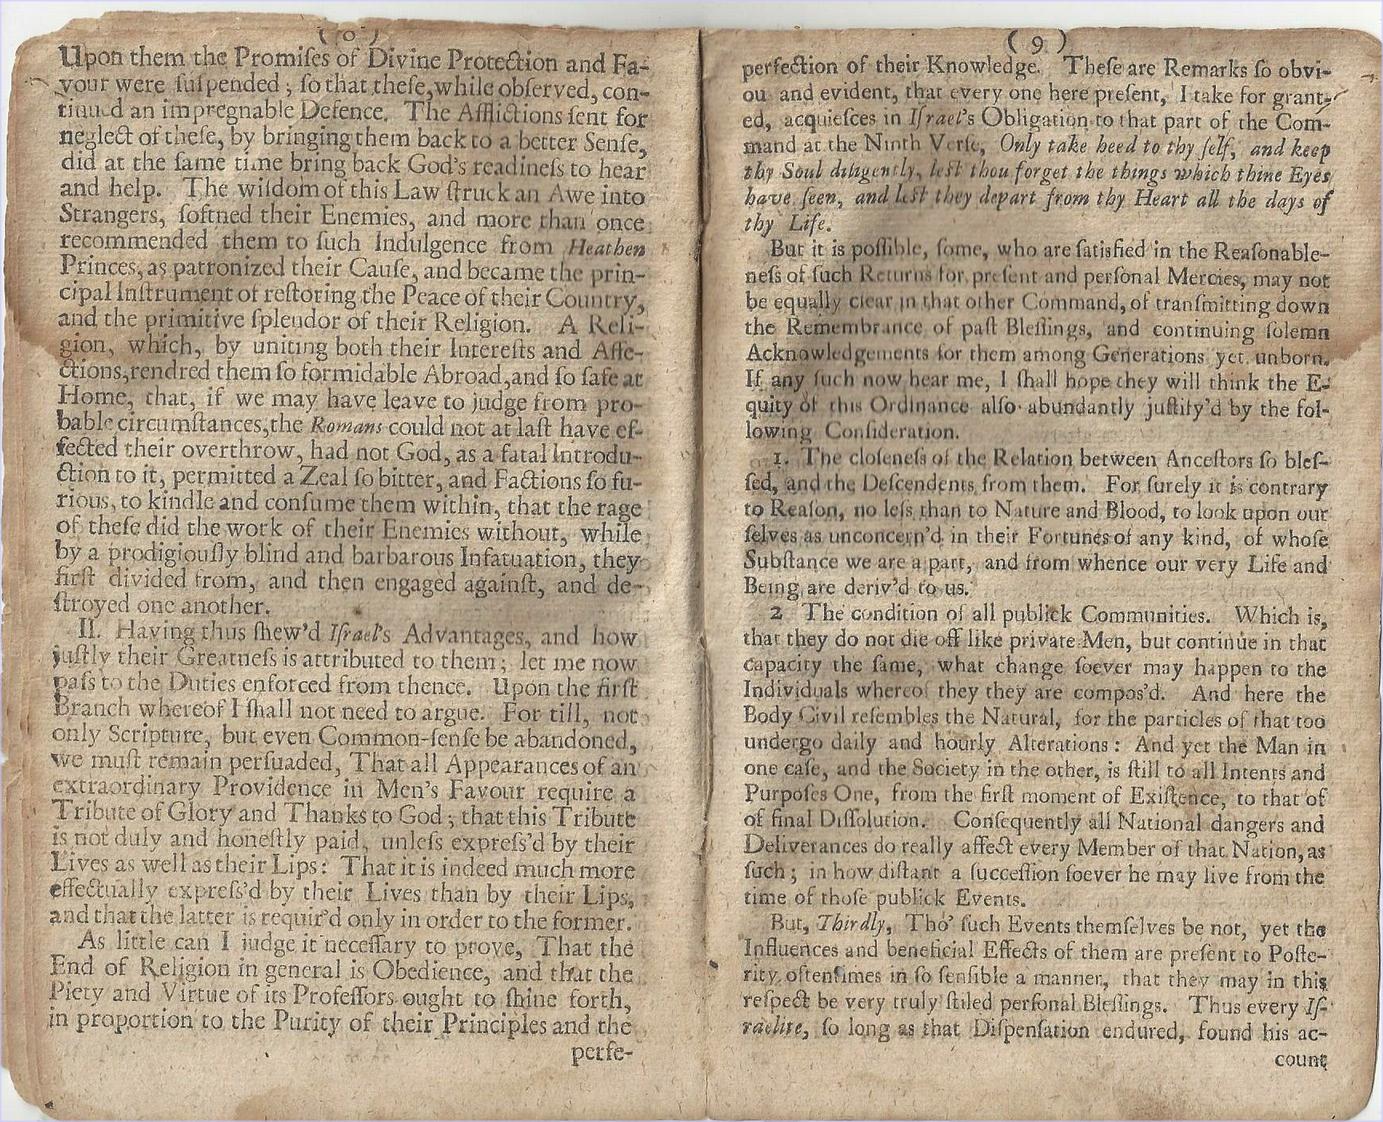 Upon them the Promiſes of Divine Protection and Fa-
vour were ſuſpended; ſo that theſe, while obſerved, con-
tinued an impregnable Defence. The Afflictions ſent for
neglect of theſe, by bringing them back to a better Senſe,
did at the ſame time bring back God's readineſs to hear
and help. The wiſdom of this Law ſtruck an Awe into
Strangers, ſoftned their Enemies, and more than once
recommended them to ſuch Indulgence from Heathen
Princes, as patronized their Cauſe, and became the prin-
cipal Inſtrument of reſtoring the Peace of their Country,
and the primitive ſplendor of their Religion. A Reli-
gion, which, by uniting both their Intereſts and Affe-
ctions, rendred them ſo formidable Abroad, and ſo ſafe at
Home, that, if we may have leave to judge from pro-
bable circumſtances, the Romans could not at laſt have ef-
fected their overthrow, had not God, as a fatal Introdu-
ction to it, permitted a Zeal ſo bitter, and Factions ſo fu-
rious, to kindle and conſume them within, that the rage
of theſe did the work of their Enemies without, while
by a prodigiouſly blind and barbarous Infatuation, they
firſt divided from, and then engaged againſt, and de-
ſtroyed one another.
II. Having thus ſhew'd Iſrael's Advantages, and how
juſtly their Greatneſs is attributed to them; let me now
paſs to the Duties enforced from thence. Upon the firſt
Branch whereof I ſhall not need to argue. For till, not
only Scripture, but even Common-ſenſe be abandoned,
we muſt remain perſuaded, That all Appearances of an
extraordinary Providence in Men's Favour require a
Tribute of Glory and Thanks to God; that this Tribute
is not duly and honeſtly paid, unleſs expreſs'd by their
Lives as well as their Lips: That it is indeed much more
effectually expreſs'd by their Lives than by their Lips,
and that the latter is requir'd only in order to the former.
As little can I judge it neceſſary to prove, That the
End of Religion in general is Obedience, and that the
Piety and Virtue of its Profeſſors ought to ſhine forth,
in proportion to the Purity of their Principles and the
perfe-
( 9 )
perfection of their Knowledge. Theſe are Remarks ſo obvi-
ou and evident, that every one here preſent, I take for grant-
ed, acquieſces in Iſrael's Obligation to that part of the Com-
mand at the Ninth Verſe, Only take heed to thy ſelf, and keep
thy Soul diligently, leſt thou forget the things which thine Eyes
have ſeen, and leſt they depart from thy Heart all the days of
thy Life.
But it is poſſible, ſome, who are ſatisfied in the Reaſonable-
neſs of ſuch Returns for preſent and perſonal Mercies, may not
be equally clear in that other Command, of tranſmitting down
the Remembrance of paſt Bleſſings, and continuing ſolemn
Acknowledgements for them among Generations yet unborn.
If any ſuch now hear me, I ſhall hope they will think the E-
quity of this Ordinance alſo abundantly juſtify'd by the fol-
lowing Conſideration.
1. The cloſeneſs of the Relation between Anceſtors ſo bleſ-
ſed, and the Deſcendents from them. For ſurely it is contrary
to Reaſon, no leſs than to Nature and Blood, to look upon our
ſelves as unconcern'd in their Fortunes of any kind, of whoſe
Subſtance we are a part, and from whence our very Life and
Being are deriv'd to us.
2 The condition of all publick Communities. Which is,
that they do not die off like private Men, but continue in that
capacity the ſame, what change ſoever may happen to the
Individuals whereof they they are compos'd. And here the
Body Civil reſembles the Natural, for the particles of that too
undergo daily and hourly Alterations: And yet the Man in
one caſe, and the Society in the other, is ſtill to all Intents and
Purpoſes One, from the firſt moment of Exiſtence, to that of
of final Diſſolution. Conſequently all National dangers and
Deliverances do really affect every Member of that Nation, as
ſuch; in how diſtant a ſucceſſion ſoever he may live from the
time of thoſe publick Events.
But, Thirdly, Tho' ſuch Events themſelves be not, yet the
Influences and beneficial Effects of them are preſent to Poſte-
rity oftentimes in ſo ſenſible a manner, that they may in this
reſpect be very truly ſtiled perſonal Bleſſings. Thus every Iſ-
raelite, ſo long as that Diſpenſation endured, found his ac-
count